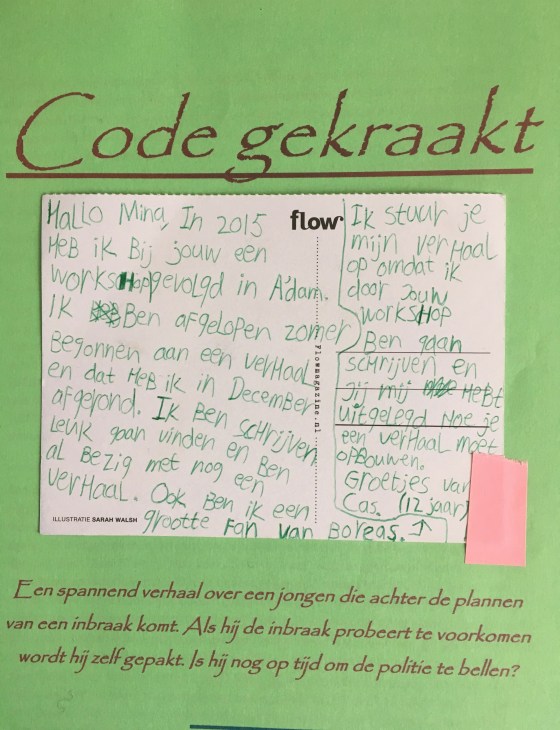 Code gekraakt
Hallo Mina, In 2015
HEB ik Bij jouw een
workshop gevolgd in A'dam.
Ik Ben afgelopen zomer
Begonnen aan een verhaal
en dat HEB ik in December
afgerond. Ik Ben schrijven
leuk gaan vinden en Ben
al Bezig met nog een
verHaal. Ook Ben ik een
grootte Fan van Boreas.
ILLUSTRATIE SARAH WALSH
flow
Flowmagazine.nl
Ik stuur je
mijn verHaal
op omdat ik
door jouw
worksHop
Ben gaan
schrijven en
jij mij HEBt
uitgelegd Hoe je
een verHaal moet
opBouwen.
Groetjes van
Cas. (12 jaar)
Een spannend verhaal over een jongen die achter de plannen
van een inbraak komt. Als hij de inbraak probeert te voorkomen
wordt hij zelf gepakt. Is hij nog op tijd om de politie te bellen?